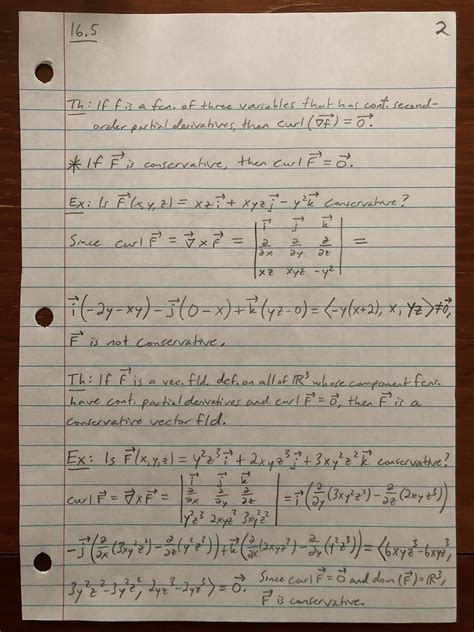 16.5 2
Th: If f is a fcn. of three variables that has cont. second-
order partial derivatives, then curl (∇⃗f) = 0⃗.
* If F⃗ is conservative, then curl F⃗ = 0⃗.
Ex: Is F⃗(x,y,z) = xz i⃗ + xyz j⃗ - y² k⃗ conservative?
Since curl F⃗ = ∇⃗ x F⃗ = | i⃗ j⃗ k⃗ | =
| ∂/∂x ∂/∂y ∂/∂z |
| xz xyz -y² |
i⃗(-2y-xy) - j⃗(0-x) + k⃗(yz-0) = ⟨-y(x+2), x, yz⟩ ≠ 0⃗,
F⃗ is not conservative.
Th: If F⃗ is a vec. fld. def. on all of ℝ³ whose component fcns.
have cont. partial derivatives and curl F⃗ = 0⃗, then F⃗ is a
conservative vector fld.
Ex: Is F⃗(x,y,z) = y²z³ i⃗ + 2xyz³ j⃗ + 3xy²z² k⃗ conservative?
curl F⃗ = ∇⃗ x F⃗ = | i⃗ j⃗ k⃗ | = i⃗(∂/∂y(3xy²z²) - ∂/∂z(2xyz³))
| ∂/∂x ∂/∂y ∂/∂z |
| y²z³ 2xyz³ 3xy²z² |
-j⃗(∂/∂x(3xy²z²) - ∂/∂z(y²z³)) + k⃗(∂/∂x(2xyz³) - ∂/∂y(y²z³)) = ⟨6xyz²-6xyz²,
3y²z²-3y²z², 2yz³-2yz³⟩ = 0⃗. Since curl F⃗ = 0⃗ and dom(F⃗) = ℝ³,
F⃗ is conservative.